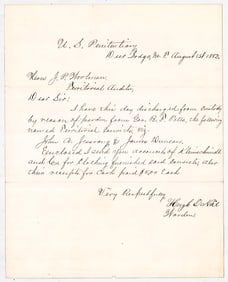 U. S. Penitentiary
Deer Lodge, M. T. August 1st 1882.
Hon J. P. Woolman
Territorial Auditor
Dear Sir:
I have this day discharged from custody
by reason of pardon from Gov. B. F. Potts, the following
named Territorial convicts, viz.
John A. and James Duncan
Enclosed I send you accounts of Kleinschmidt
and Co for Clothing furnished said convicts, also
their receipts for Cash paid $5.00 Each
Very Respectfully
Warden